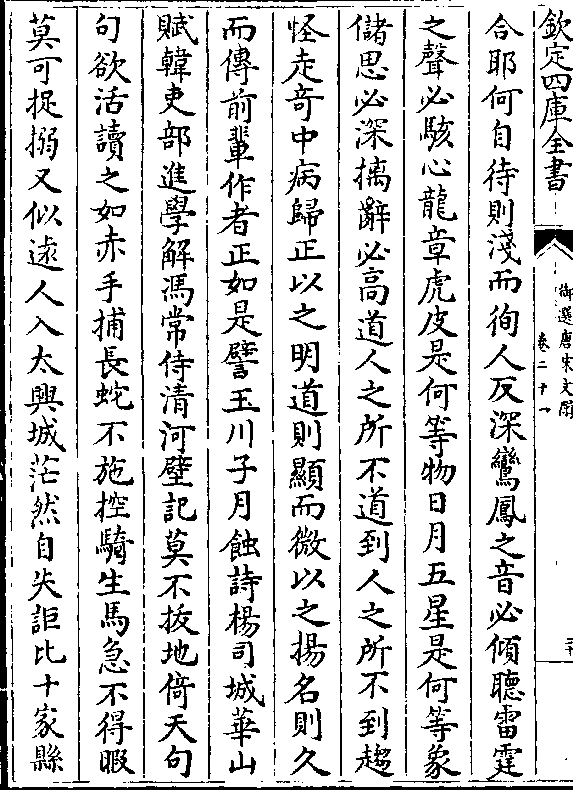 欽定四庫全書
御選唐宋文醇
卷二十一
合耶何自待則淺而徇人反深鸞鳳之音必傾聽雷霆
之聲必駭心龍章虎皮是何等物日月五星是何等象
儲思必深摛辭必高道人之所不道到人之所不到趨
怪走奇中病歸正以之明道則顯而微以之揚名則久
而傳前輩作者正如是譬玉川子月蝕詩楊司城華山
賦韓吏部進學解馮常侍清河壁記莫不拔地倚天句
句欲活讀之如赤手捕長蛇不施控騎生馬急不得暇
莫可捉搦又似遠人入太興城茫然自失詎比十家縣